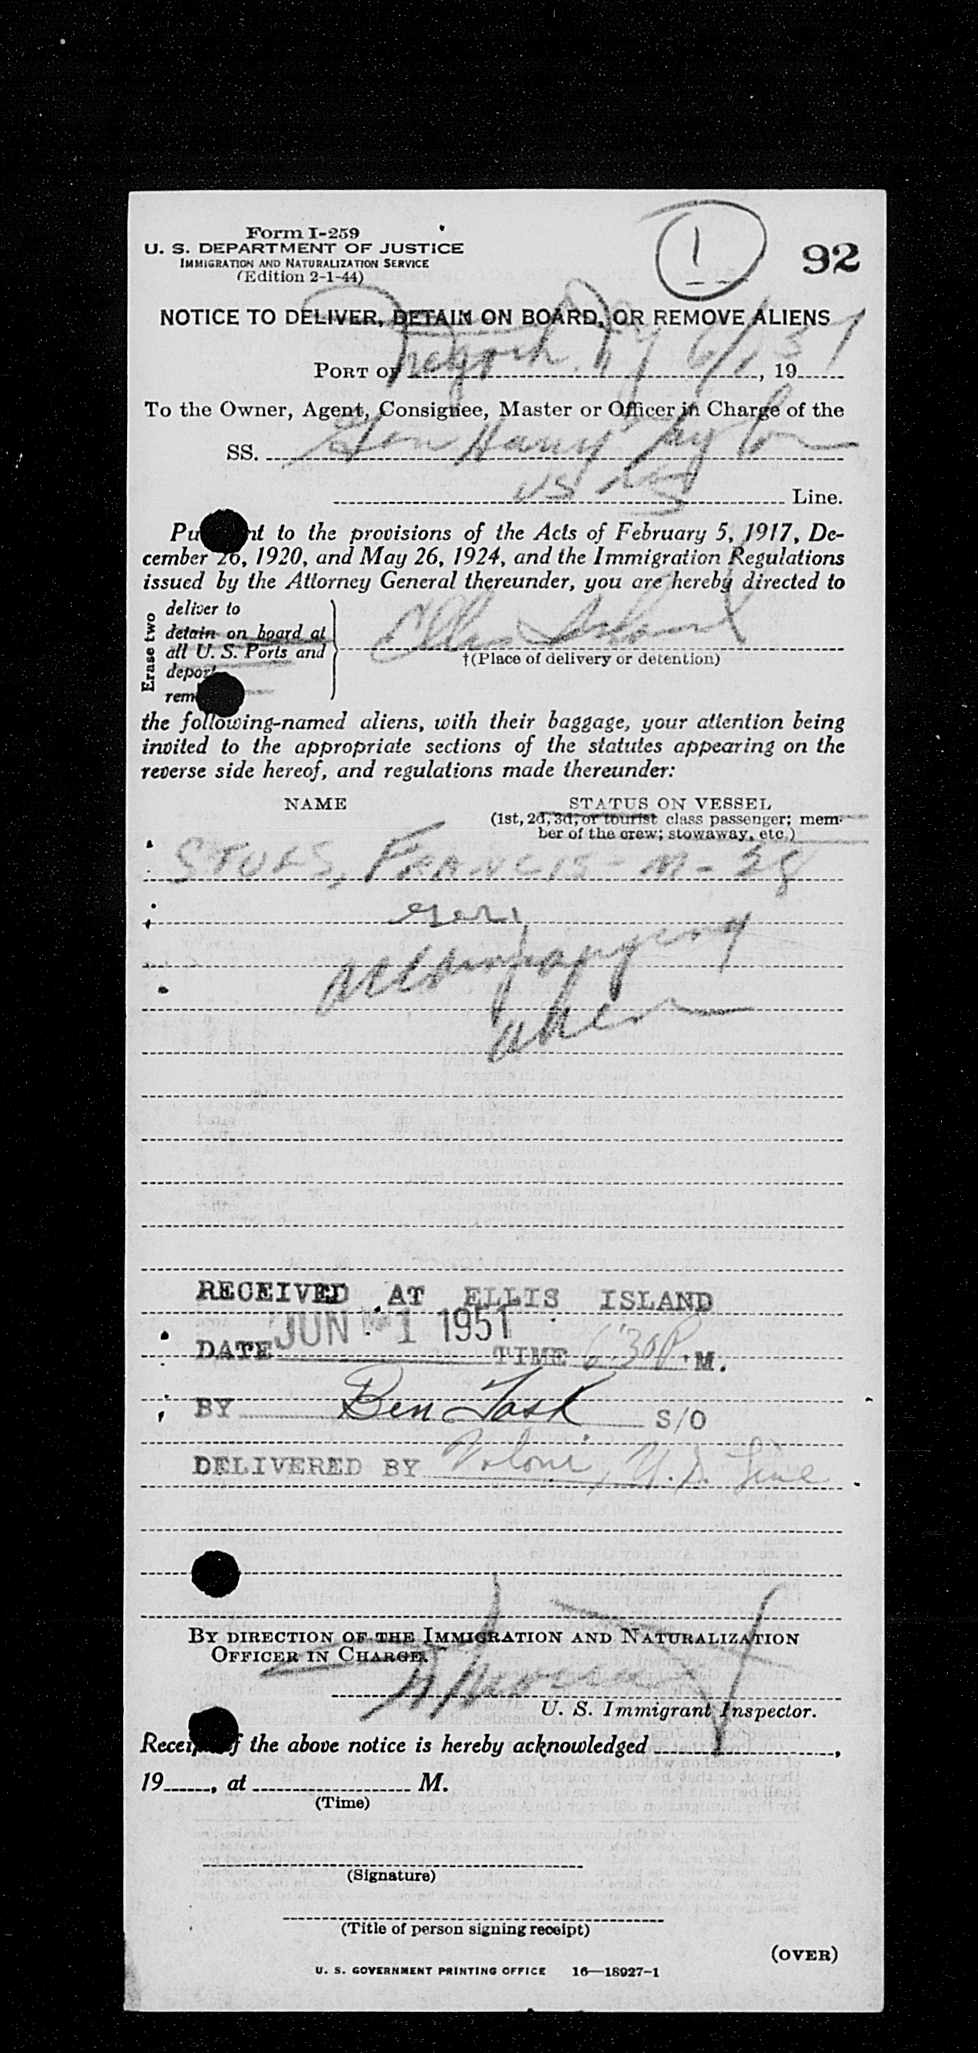 Form I-259
U. S. DEPARTMENT OF JUSTICE
IMMIGRATION AND NATURALIZATION SERVICE
(Edition 2-1-44)
1
92
NOTICE TO DELIVER, DETAIN ON BOARD, OR REMOVE ALIENS
PORT OF N Y 6/1, 1951
To the Owner, Agent, Consignee, Master or Officer in Charge of the
SS. Gen Harry Taylor
US Line.
Pu nt to the provisions of the Acts of February 5, 1917, De-
cember 26, 1920, and May 26, 1924, and the Immigration Regulations
issued by the Attorney General thereunder, you are hereby directed to
Erase two
deliver to
detain on board at
all U. S. Ports and
deport
rem
Ellis Island
†(Place of delivery or detention)
the following-named aliens, with their baggage, your attention being
invited to the appropriate sections of the statutes appearing on the
reverse side hereof, and regulations made thereunder:
NAME
STATUS ON VESSEL
(1st, 2d, 3d, or tourist class passenger; mem-
ber of the crew; stowaway, etc.)
FRANCIS - M - 28
accompanying
alien
RECEIVED AT ELLIS ISLAND
DATE JUN 1 1951 TIME 6:30 P.M.
BY Ben Task S/O
DELIVERED BY U.S. Line
BY DIRECTION OF THE IMMIGRATION AND NATURALIZATION
OFFICER IN CHARGE.
U. S. Immigrant Inspector.
Receipt of the above notice is hereby acknowledged ,
19 , at M.
(Time)
(Signature)
(Title of person signing receipt)
(OVER)
U. S. GOVERNMENT PRINTING OFFICE 16—18927-1